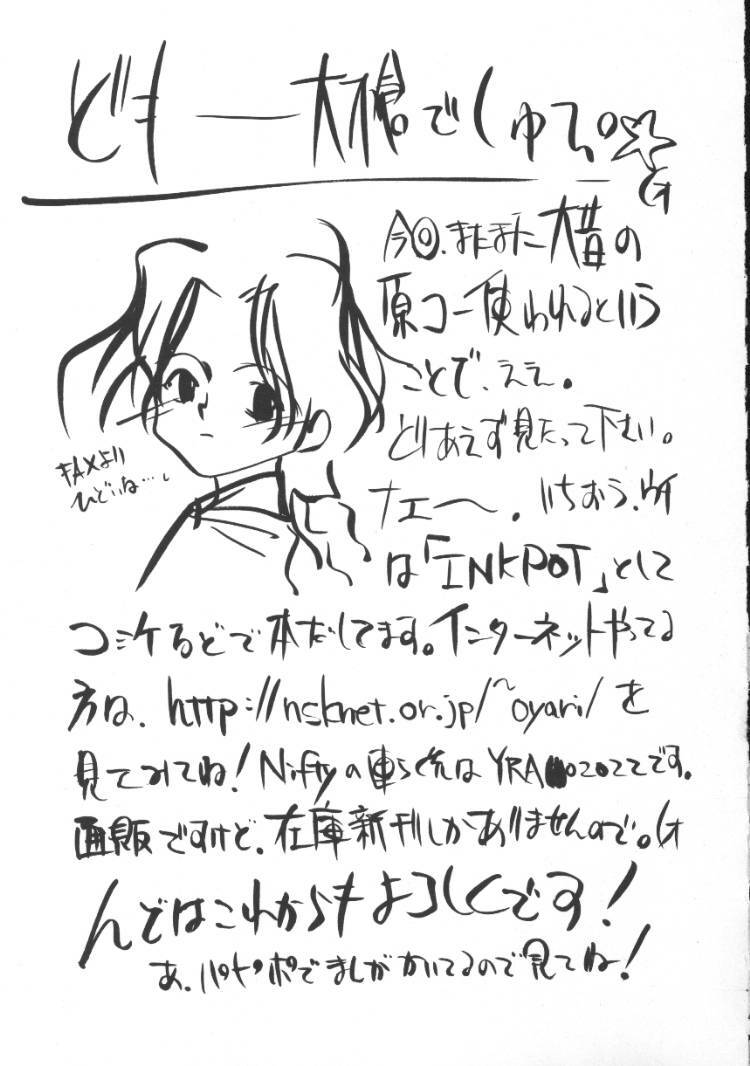 どもー大槍でしゅてぃ。☆
(オ
今回、またまた大昔の
原コー使われるという
ことで、ええ。
とりあえず見たって下さい。
ナエ〜。いちおう、ウチ
は「INKPOT」として
コミケなどで本だしてます。インターネットやってる
方は、http://nsknet.or.jp/~oyari/を
見てみてね!Niftyの連らく先はYRA02022です。
通販ですけど、在庫新刊しかありませんので。(オ
んではこれからもよろしくです!
あ、パトポポでまんがかいてるので見てね!
FAXより
ひどいな…。